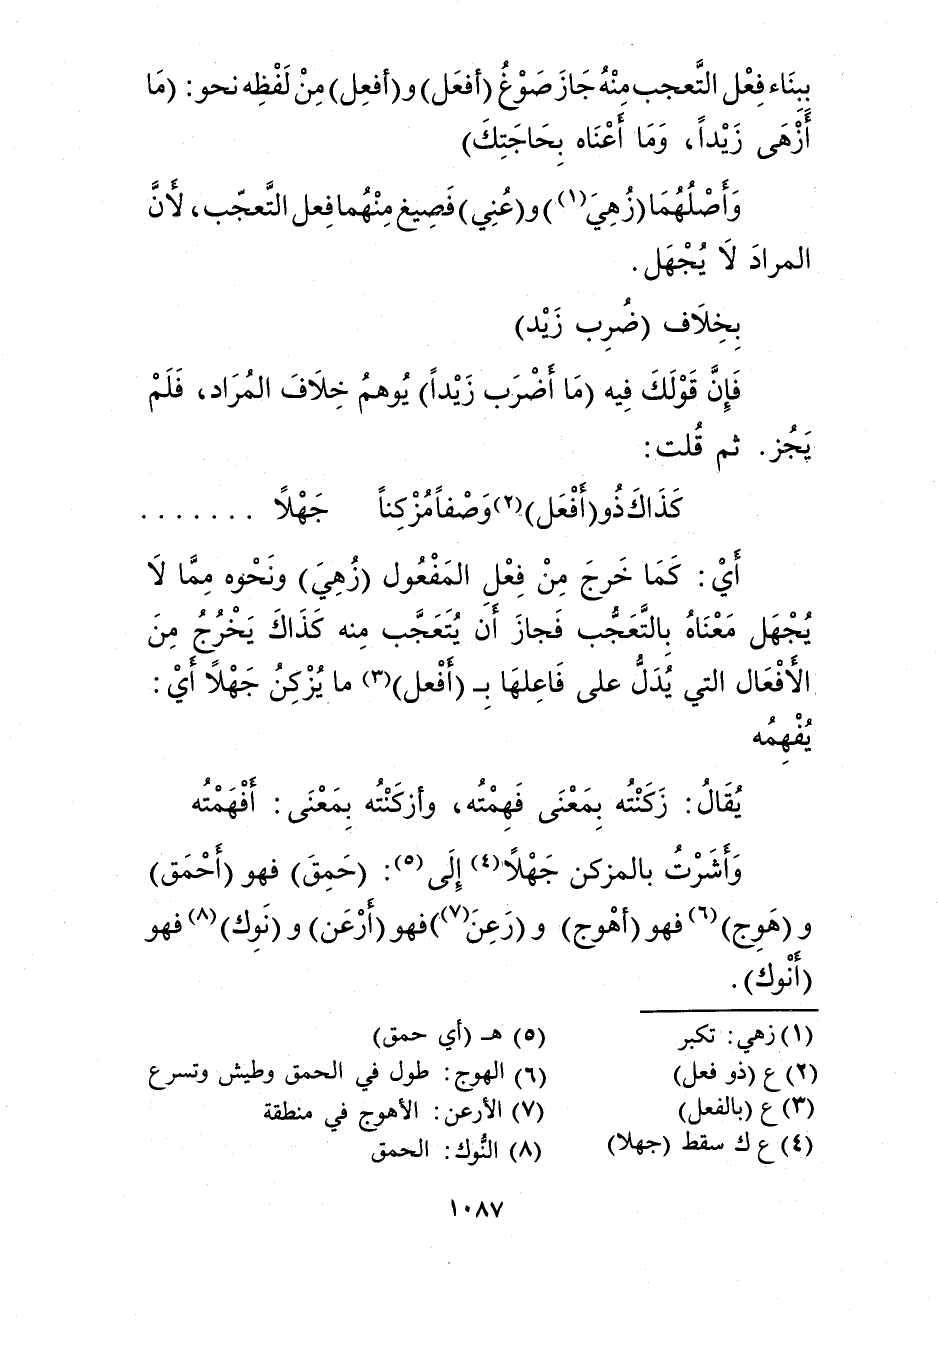 بِبِنَاء فِعْل التَّعجب مِنْهُ جَازَ صَوْغُ (أفعَل) و(أفعِل) مِنْ لَفْظِه نحو: (مَا
أَزْهَى زَيْداً، وَمَا أَعْنَاه بِحَاجَتِكَ)
وَأَصْلُهُمَا (زُهِيَ(١)) و(عُنِي) فَصِيغ مِنْهُما فِعل التَّعجّب، لأَنَّ
المرادَ لَا يُجْهَل.
بِخِلَاف (ضُرِب زَيْد)
فَإِنَّ قَوْلَكَ فِيه (مَا أَضْرَب زَيْداً) يُوهمُ خِلَافَ المُرَاد، فَلَمْ
يَجُز. ثم قُلت:
كَذَاكَ ذُو (أَفْعَل)(٢) وَصْفاً مُزْكِناً جَهْلًا .......
أَيْ: كَمَا خَرجَ مِنْ فِعْلِ المَفْعُول (زُهِيَ) ونَحْوه مِمَّا لَا
يُجْهَل مَعْنَاهُ بِالتَّعَجُّب فَجازَ أَن يُتَعَجَّب مِنه كَذَاكَ يَخْرُجُ مِنَ
الأَفْعَال التي يُدَلُّ على فَاعِلهَا بِـ (أَفْعل)(٣) ما يُزْكِنُ جَهْلًا أَيْ:
يُفْهِمُه
يُقَالُ: زَكَنْتُه بِمَعْنَى فَهِمْتُه، وأزكَنْتُه بِمَعْنَى: أَفْهَمْتُه
وَأَشَرْتُ بالمزكن جَهْلًا(٤) إِلَى(٥): (حَمِقَ) فهو (أَحْمَق)
و (هَوِج)(٦) فهو (أهْوج) و (رَعِنَ(٧)) فهو (أَرْعَن) و (نَوِك)(٨) فهو
(أَنْوك).
(١) زهي: تكبر
(٢) ع (ذو فعل)
(٣) ع (بالفعل)
(٤) ع ك سقط (جهلا)
(٥) هـ (أي حمق)
(٦) الهوج: طول في الحمق وطيش وتسرع
(٧) الأرعن: الأهوج في منطقة
(٨) النُّوك: الحمق
١٠٨٧